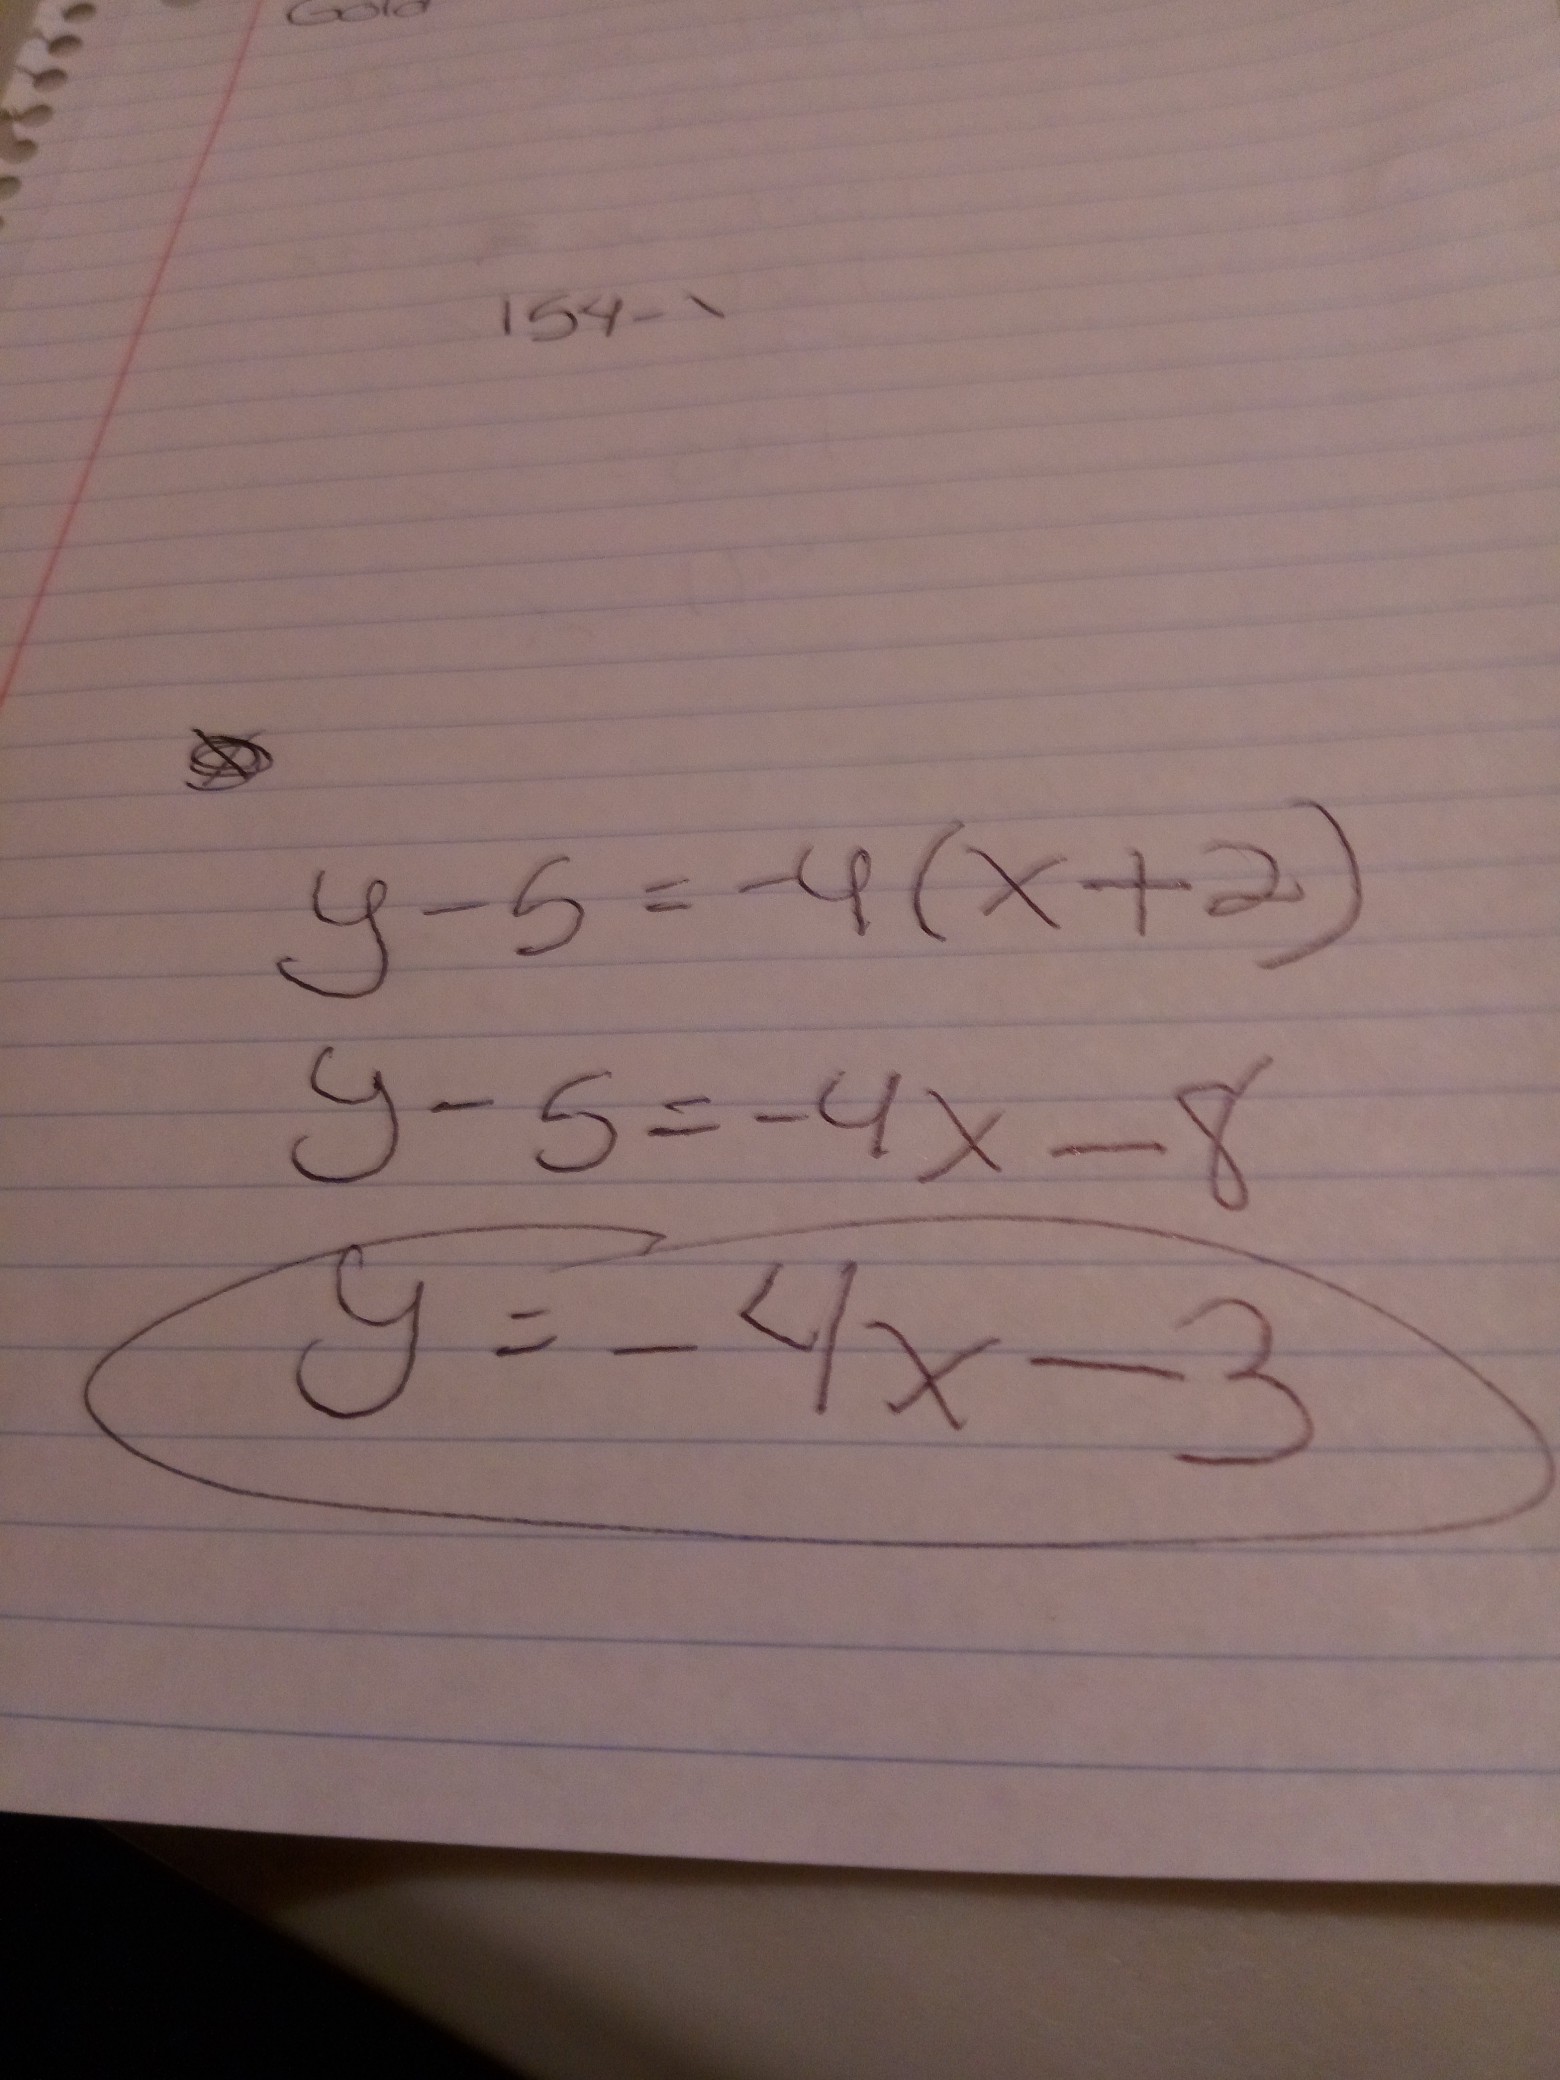 Gold
154-
y-5=-4(x+2)
y-5=-4x-8
y=-4x-3